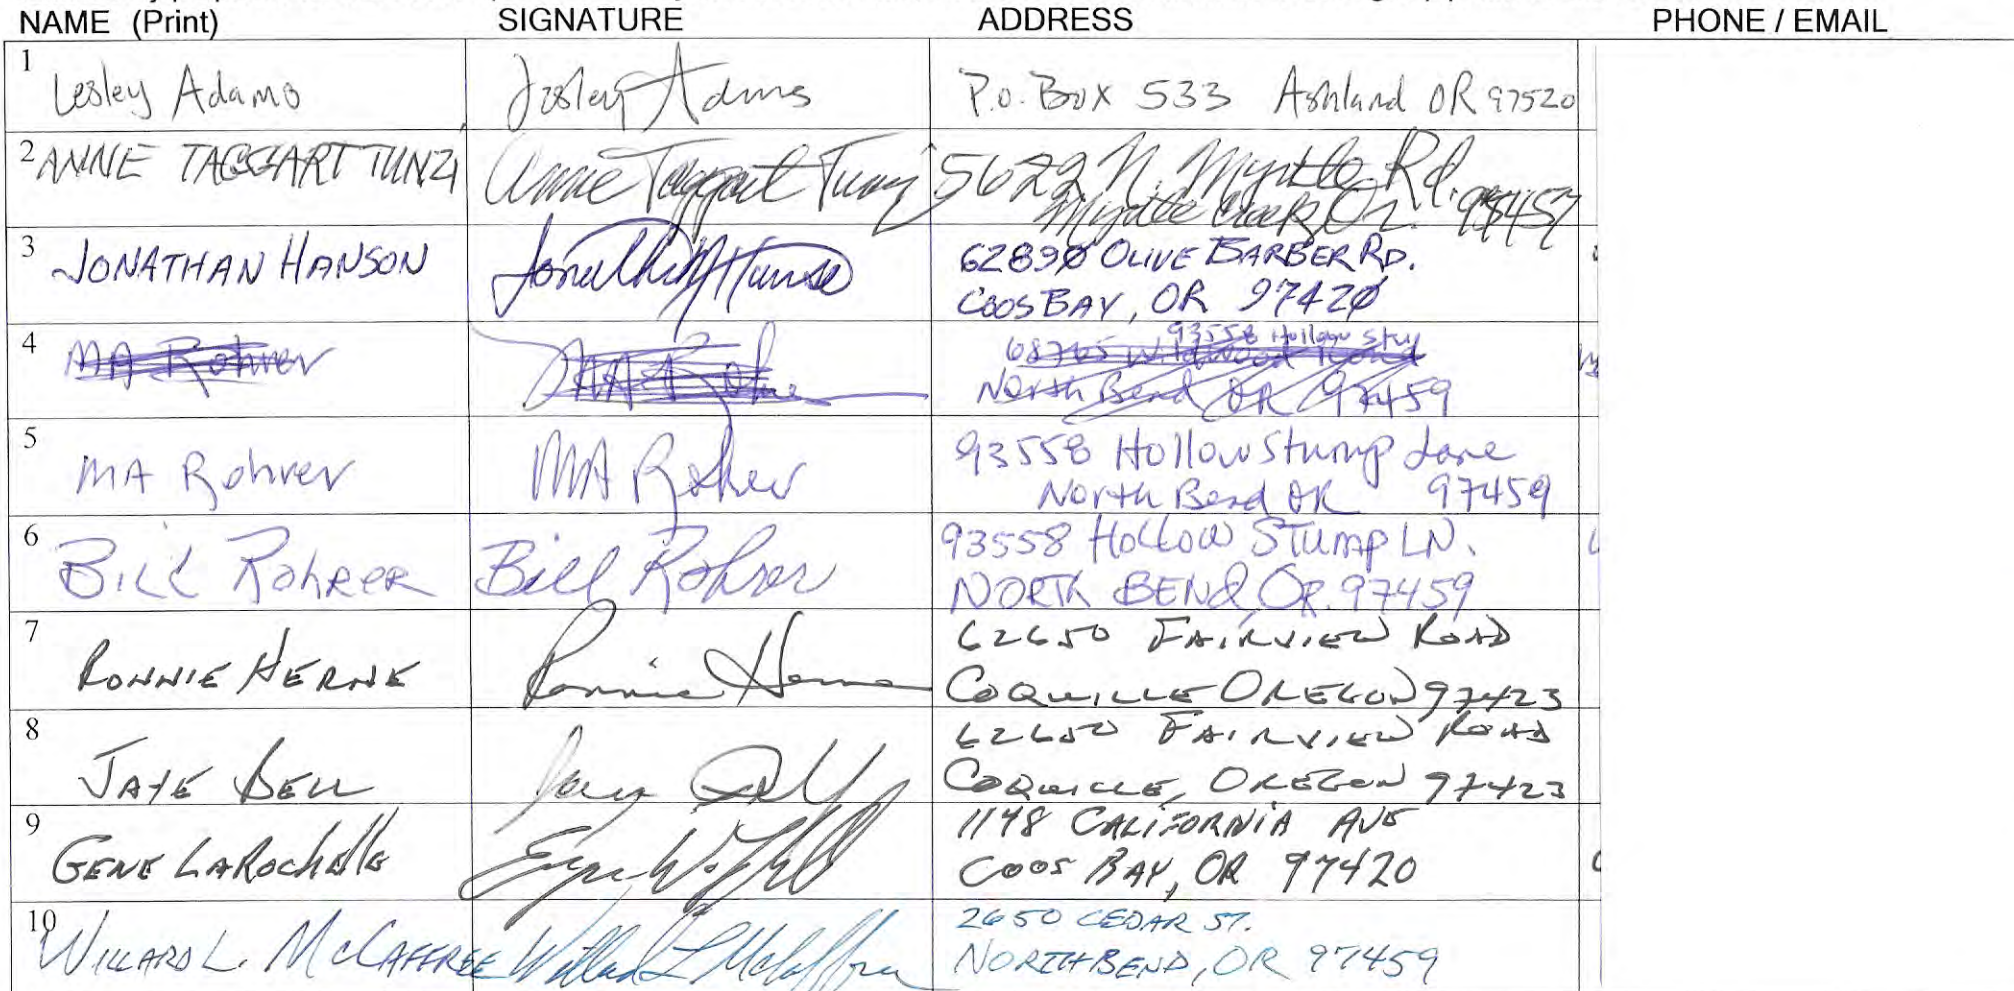 NAME (Print) SIGNATURE ADDRESS PHONE / EMAIL
1 Lesley Adams Lesley Adams P.O. Box 533 Ashland OR 97520
2 ANNIE TAGGART TUNZI Annie Taggart Tunzi 5622 N. Myrtle Rd.
Myrtle Creek Or. 97457
3 JONATHAN HANSON Jonathan Hanson 62890 OLIVE BARBER RD.
COOS BAY, OR 97420
4 MA Rohrer MA Rohrer 93558 Hollow Stump
68765 Wildwood Road
North Bend OR 97459
5 MA Rohrer MA Rohrer 93558 Hollow Stump Lane
North Bend OR 97459
6 BILL ROHRER Bill Rohrer 93558 HOLLOW STUMP LN.
NORTH BEND, OR. 97459
7 RONNIE HERNE Ronnie Herne 62650 FAIRVIEW ROAD
COQUILLE OREGON 97423
8 JAYE BELL Jaye Bell 62650 FAIRVIEW ROAD
COQUILLE, OREGON 97423
9 GENE LAROCHELLE 1148 CALIFORNIA AVE
COOS BAY, OR 97420
10 WILLARD L. McCAFFREE Willard L McCaffree 2650 CEDAR ST.
NORTH BEND, OR 97459